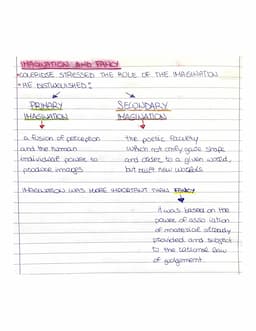 IMAGINATION AND FANCY
•COLERIDGE STRESSED THE ROLE OF THE IMAGINATION
•HE DISTINGUISHED:
PRIMARY SECONDARY
IMAGINATION IMAGINATION
a fusion of perception the poetic faculty
and the human which not only gave shape
individual power to and order to a given world,
produce images but built new worlds
IMAGINATION WAS MORE IMPORTANT THAN FANCY
it was based on the
power of association
of material already
provided and subject
to the rational law
of judgement.